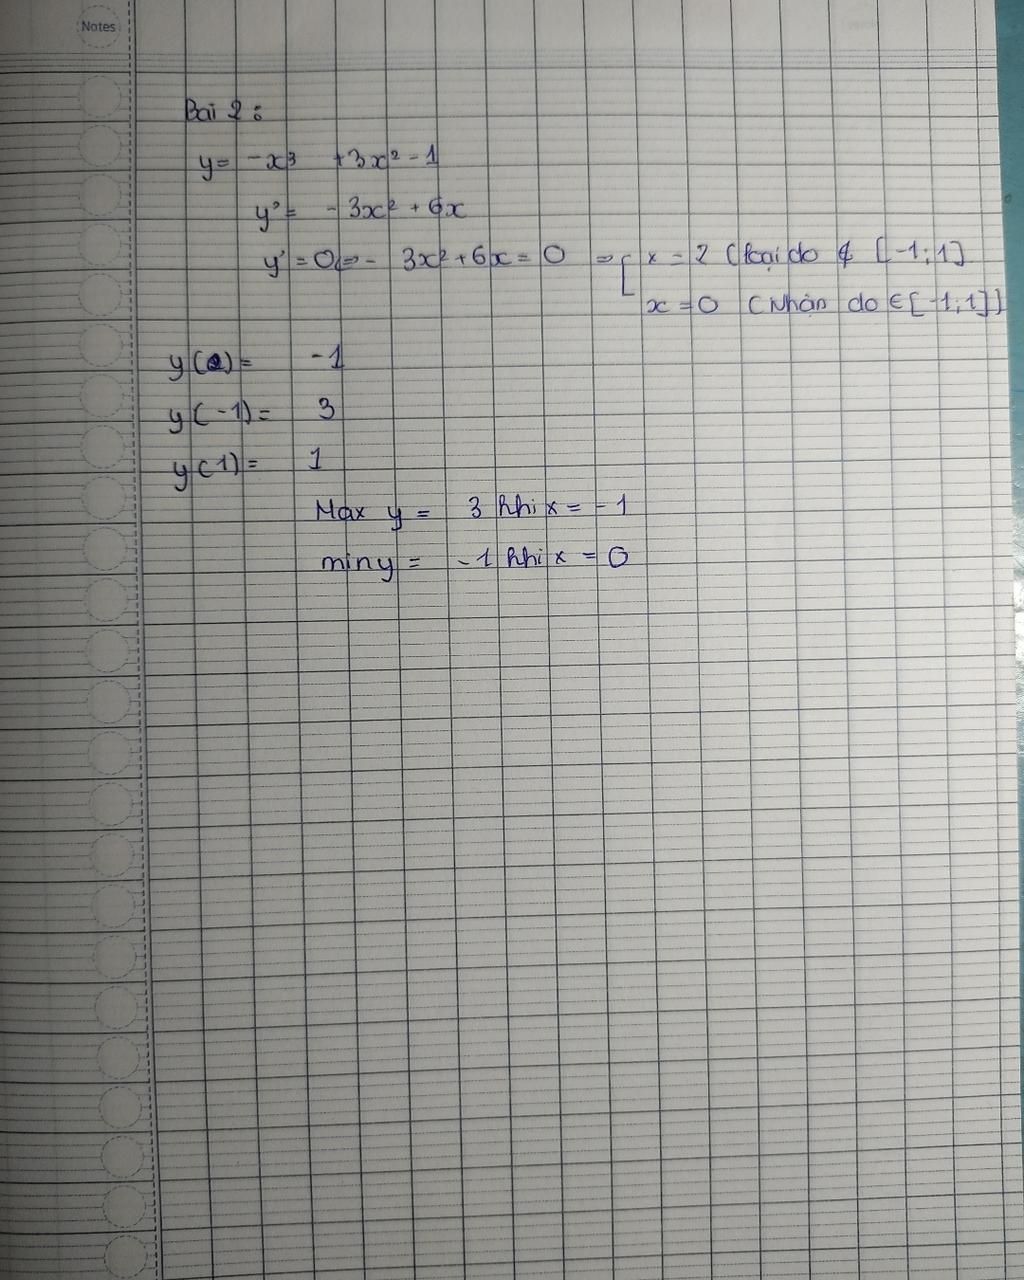 Notes
Bài 2:
y = -x³ + 3x² - 1
y' = -3x² + 6x
y' = 0 ⇔ - 3x² + 6x = 0 ⇒ [ x = 2 (loại do ∉ [-1; 1]
x = 0 (Nhận do ∈ [-1; 1])
y(0) = -1
y(-1) = 3
y(1) = 1
Max y = 3 khi x = -1
min y = -1 khi x = 0